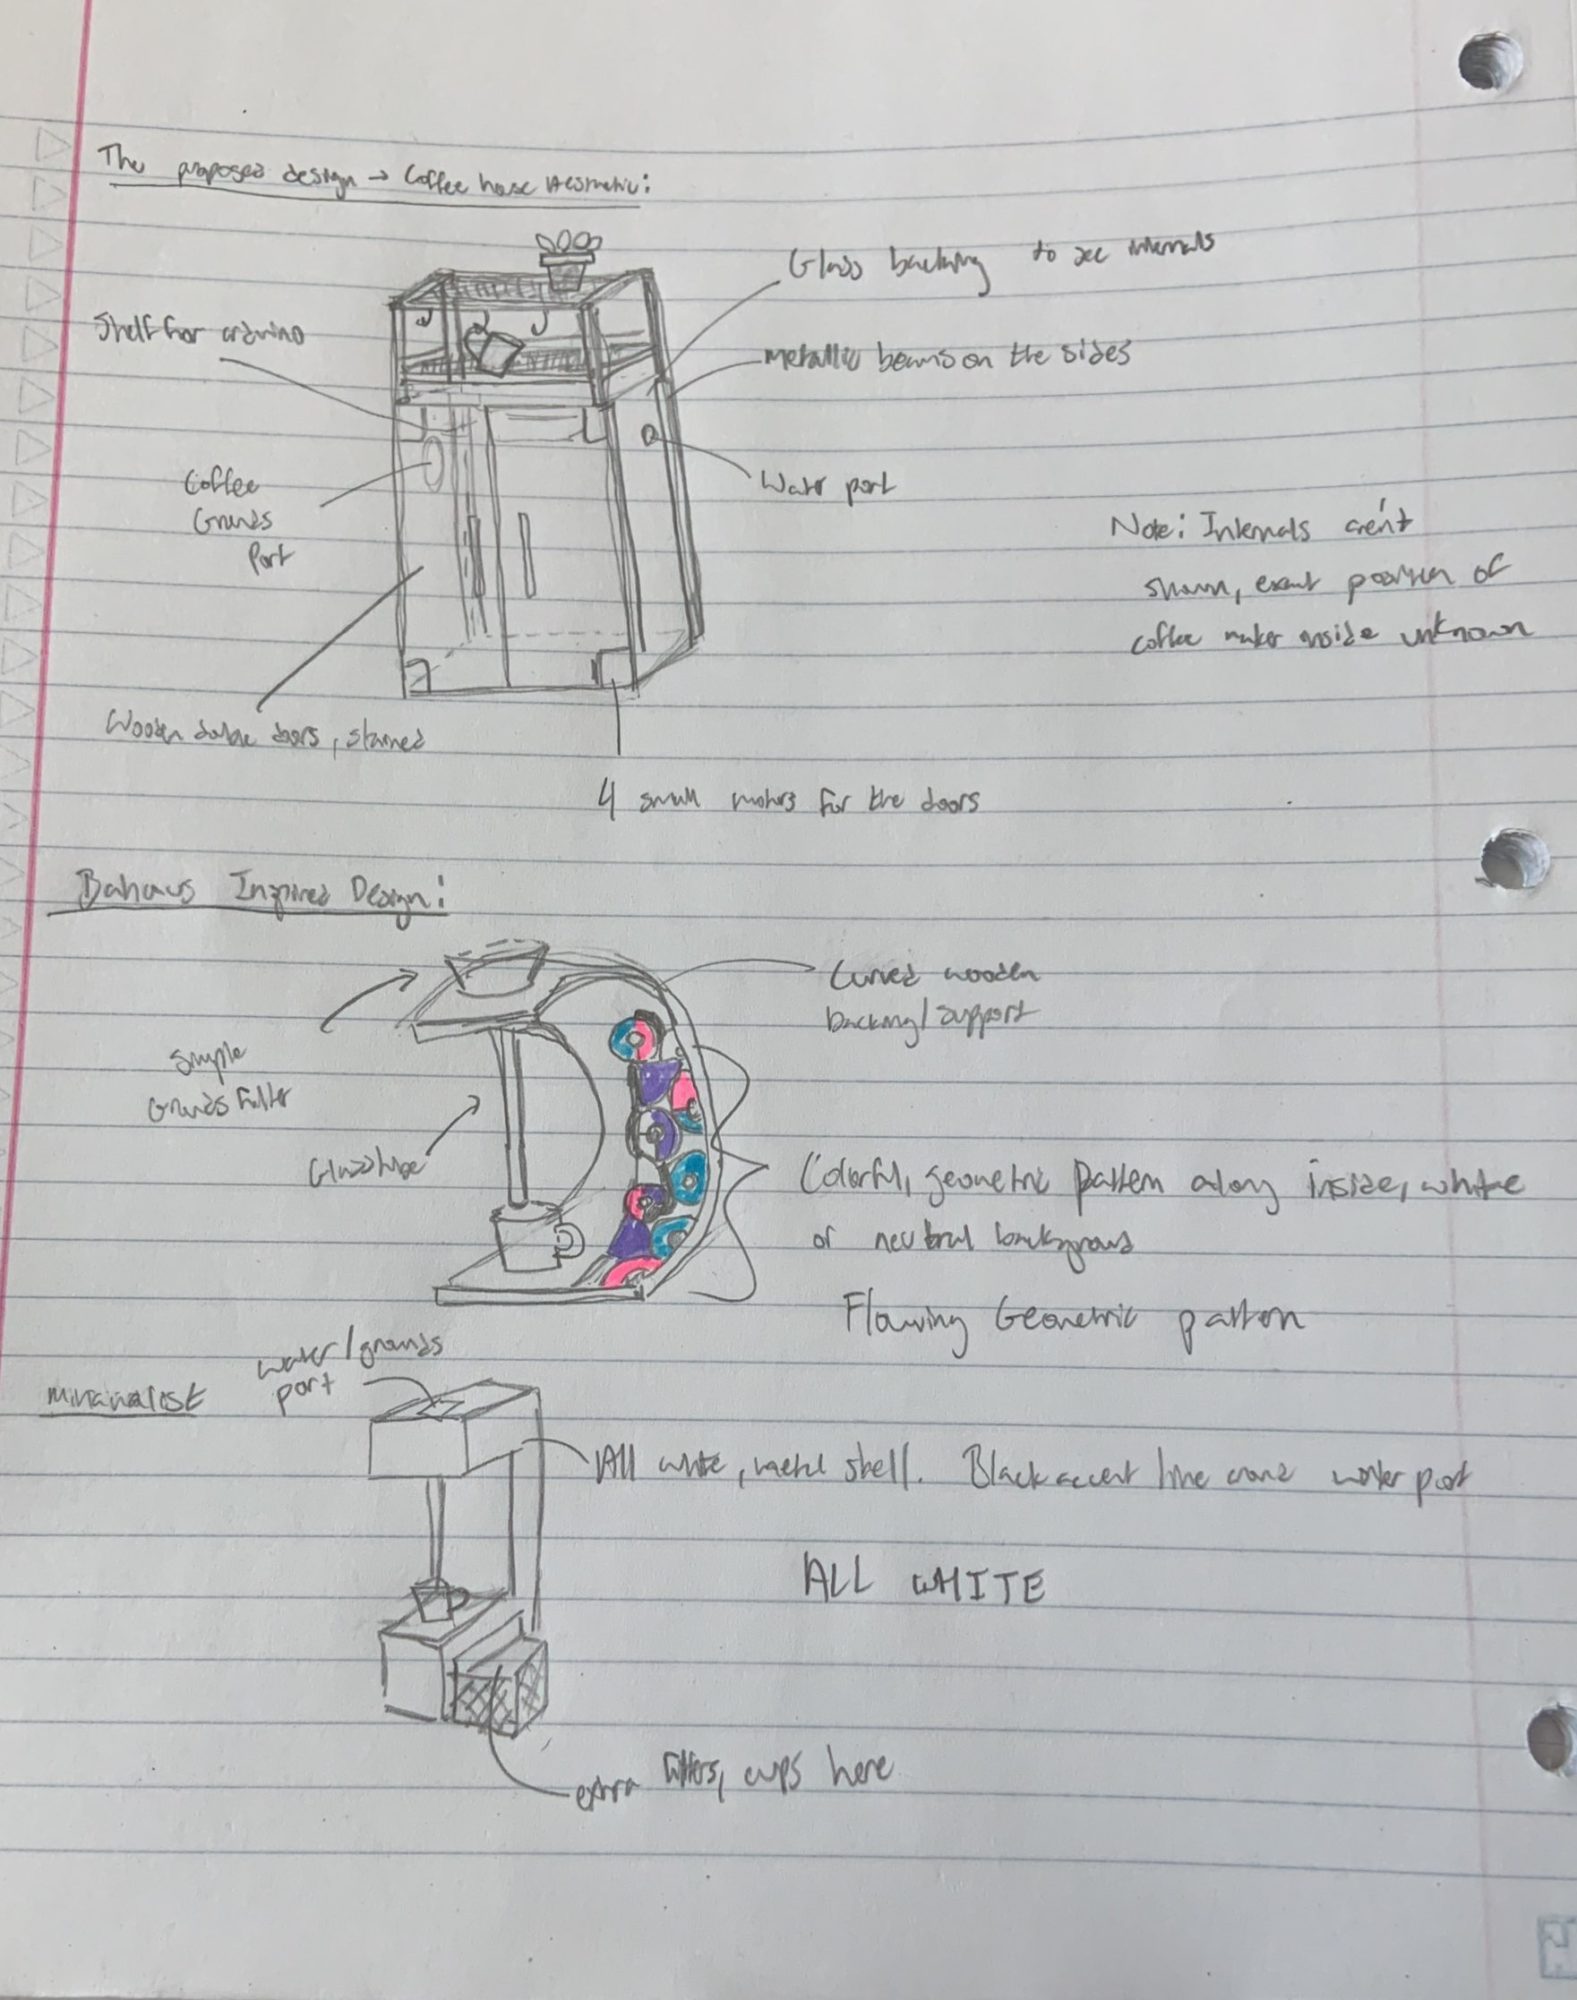 The proposed design → Coffee house Aesthetic:
Glass backing to see internals
Shelf for arduino
metallic beams on the sides
Coffee
Grounds
Port
Water port
Note: Internals aren't
shown, exact position of
coffee maker inside unknown
Wooden double doors, stained
4 small motors for the doors
Bahaus Inspired Design:
Curved wooden
backing/support
Simple
Grounds Filter
Glass tube
Colorful, geometric pattern along inside, white
or neutral background
Flowing Geometric pattern
water/grounds
port
minamalist
All white, metal shell. Black accent line around water port
ALL WHITE
extra filters, cups here